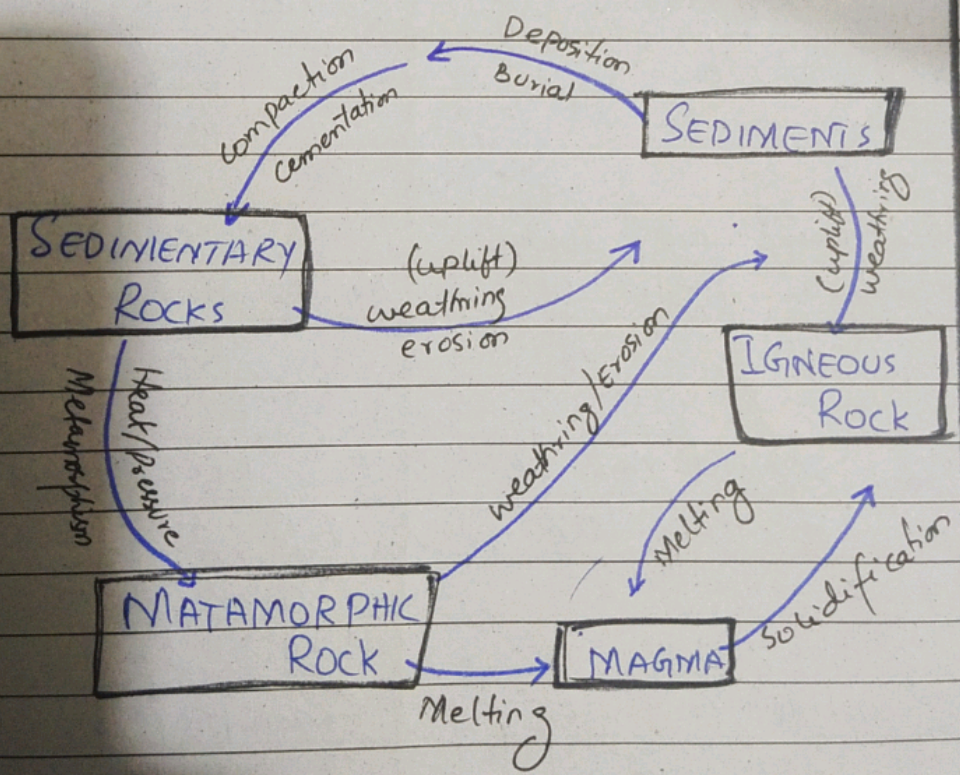 Deposition
Burial
compaction
cementation
SEDIMENTS
SEDIMENTARY
ROCKS
(uplift)
weathring
erosion
(uplift)
weathring
IGNEOUS
ROCK
Heat/Pressure
Metamorphism
weathring/Erosion
Melting
Solidification
MATAMORPHIC
ROCK
MAGMA
Melting